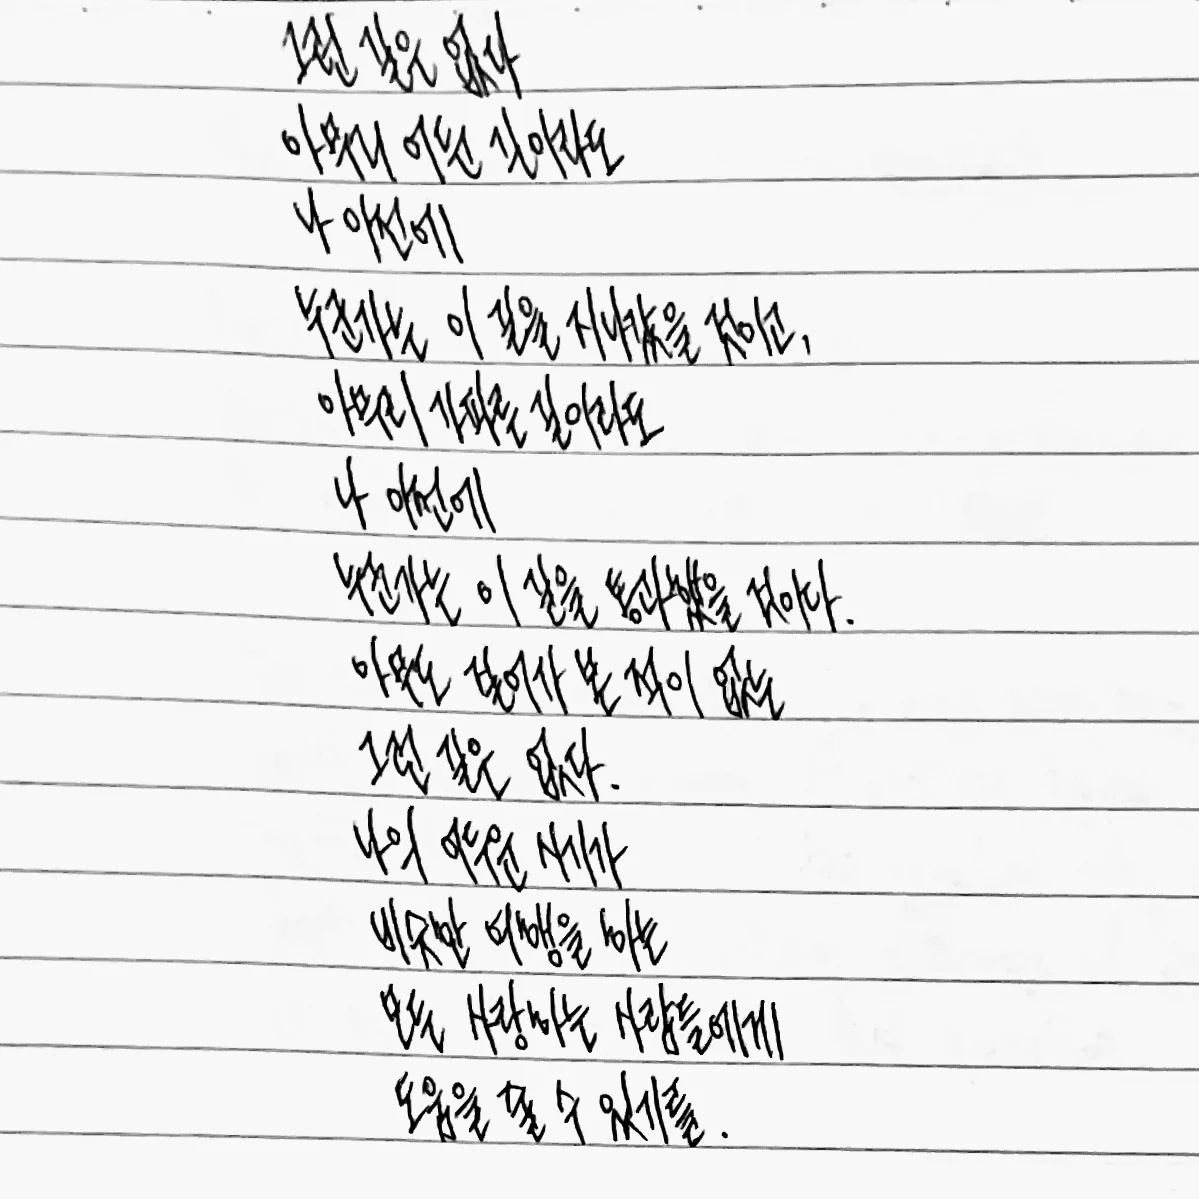 그런 길은 없다
아무리 어둔 길이라도
나 이전에
누군가는 이 길을 지나갔을 것이고,
아무리 가파른 길이라도
나 이전에
누군가는 이 길을 통과했을 것이다.
아무도 걸어가 본 적이 없는
그런 길은 없다.
나의 어두운 시기가
비슷한 여행을 하는
모든 사랑하는 사람들에게
도움을 줄 수 있기를.